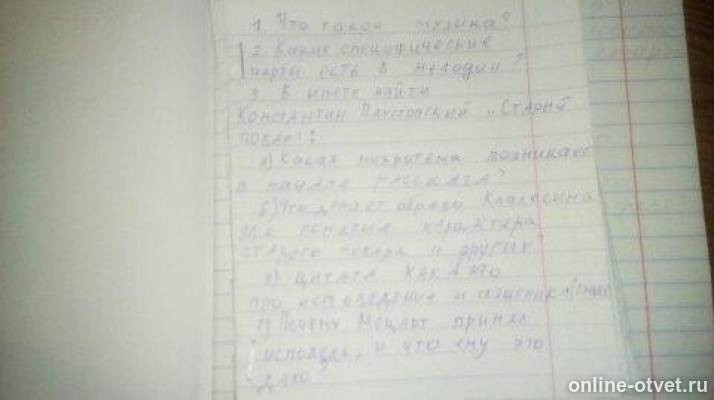 1 Что такое музика?
2. Какие специфические
черты есть в мелодии?
3. В инете найти
Константин Паустовский „Старый
повар":
а) Какая микротема возникает
в начале рассказа?
б) Что делает образы
характера
старого повара и других?
в) цитата
про исповедение и
г) Почему Моцарт принял
исповедь, и что ему это
дало?
online-otvet.ru